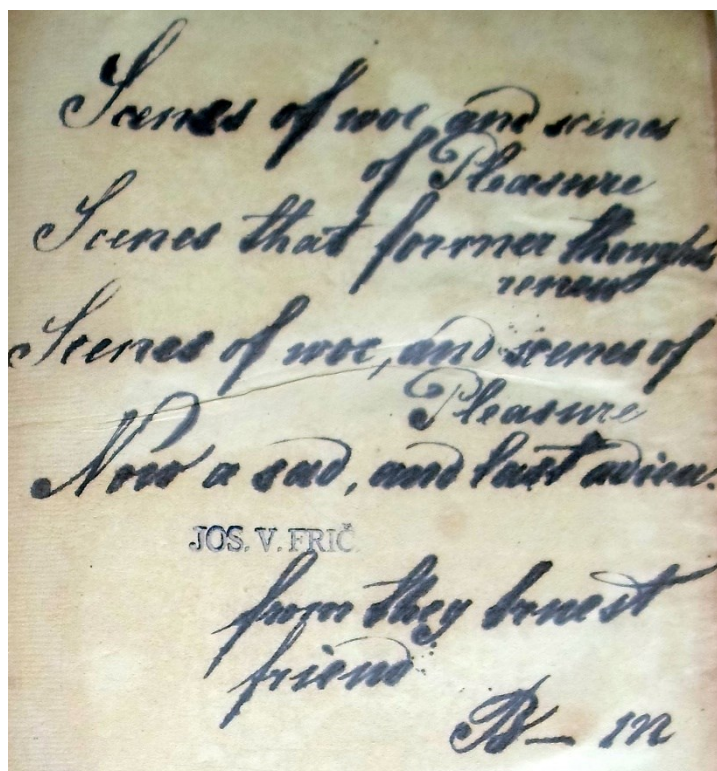 Scenes of woe and scenes
of Pleasure
Scenes that former thoughts
renew
Scenes of woe, and scenes of
Pleasure
Now a sad, and last adieu.
JOS. V. FRIČ
from they honest
friend
B— m